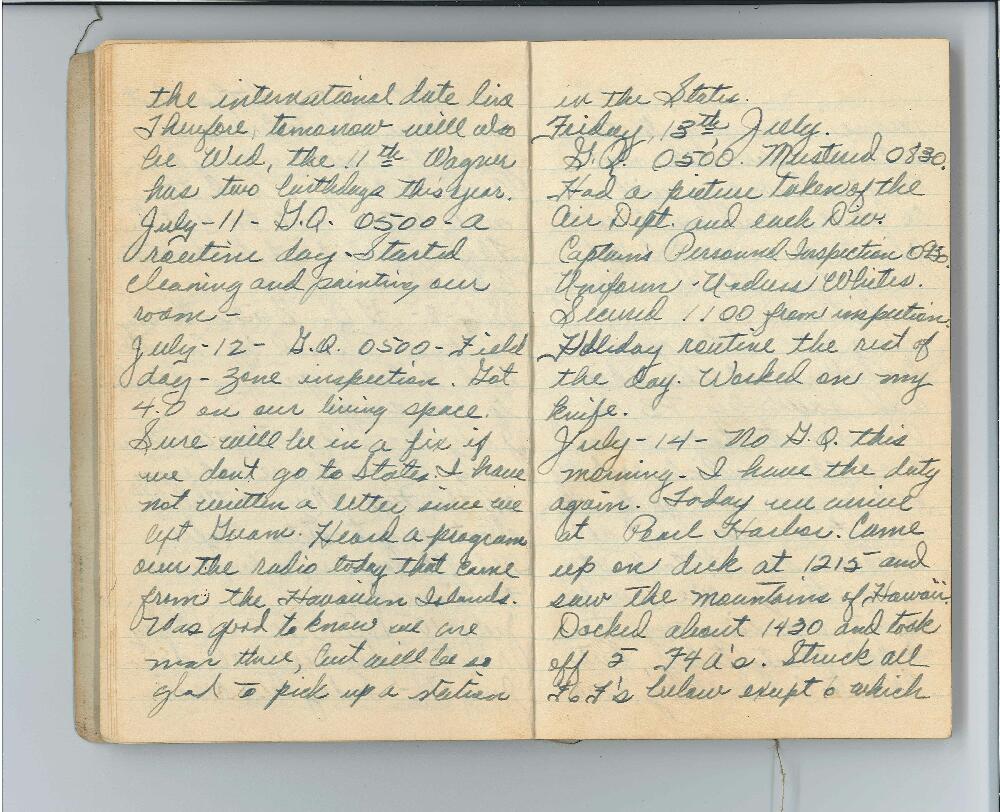 the international date line
Therefore, tomorrow will also
be Wed, the 11th Wagner
has two birthdays this year.
July-11- G.Q. 0500- a
routine day-Started
cleaning and painting our
room-
July-12- G.Q. 0500- Field
day- zone inspection. Got
4.0 on our living space.
Sure will be in a fix if
we don't go to States. I have
not written a letter since we
left Guam. Heard a program
over the radio today that came
from the Havaiian Islands.
Was good to know we are
near there, but will be so
glad to pick up a station
in the States.
Friday, 13th July.
G.Q. 0500. Mustered 0830.
Had a picture taken of the
Air Dept. and each Div.
Captains Personnel Inspection 0930.
Uniform - Undress Whites.
Secured 1100 from inspection.
Holiday routine the rest of
the day. Worked on my
knife.
July-14- No G.Q. this
morning. I have the duty
again. Today we arrive
at Pearl Harbor. Came
up on deck at 1215 and
saw the mountains of Hawaii.
Docked about 1430 and took
off 5 F4U's. Struck all
F6F's below except 6 which